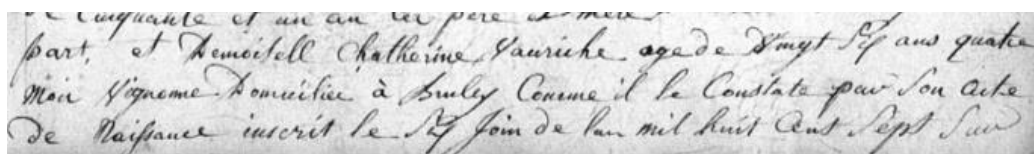 de Cinquante et un an ses père et mère
part, et Demoisell Chatherine Vauriche age de Vingt Six ans quatre
moir Vigneronne Domiciliée à Bruley Comme il le Constate par Son acte
de Naissance inscrit le Six Join de lan mil huit Cent Sept Sur